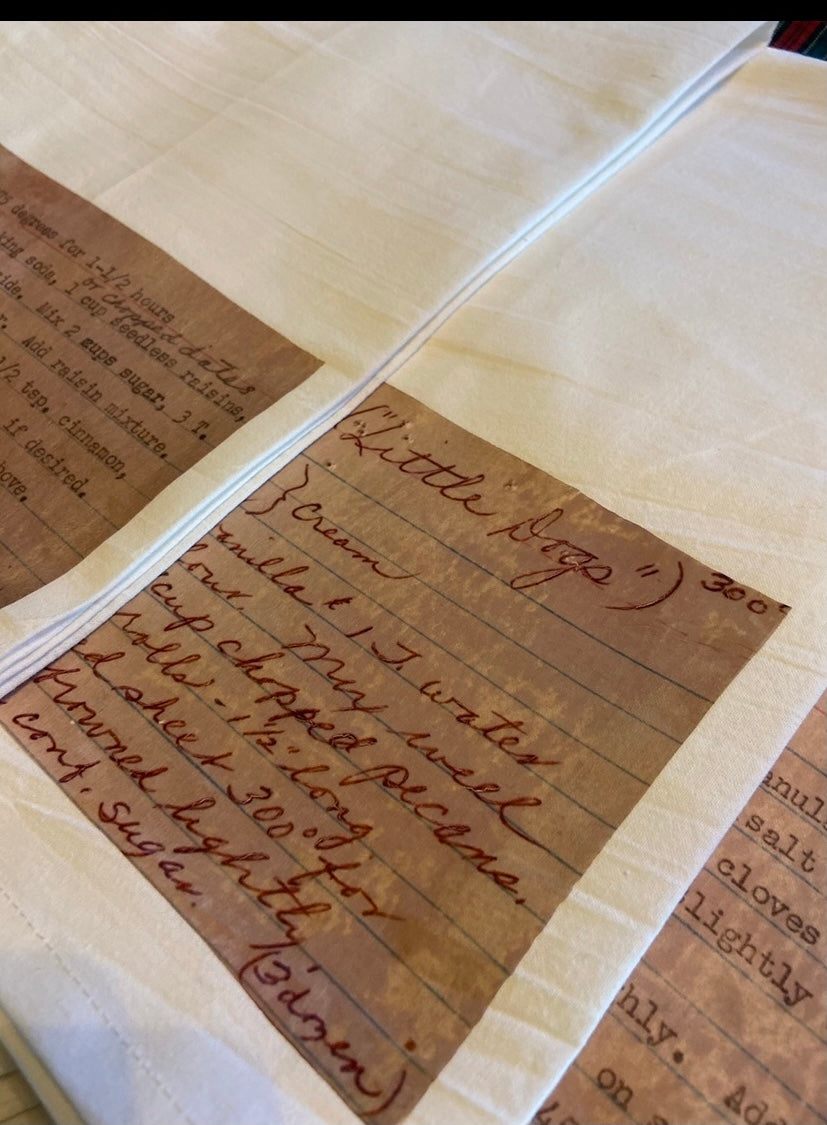 75 degrees for 1-1/2 hours
or chopped dates
king soda, 1 cup seedless raisins,
ide. Mix 2 cups sugar, 3 T.
r. Add raisin mixture.
1/2 tsp. cinnamon,
if desired.
bove.
("Little Dogs") 300°
} cream
anilla & 1 T. water
lour. Mix well
cup chopped pecans.
rolls - 1 1/2" long
d sheet 300° for
rowned lightly
conf. sugar.
(3 dozen)
anul
salt
cloves
slightly
hly. Add
on